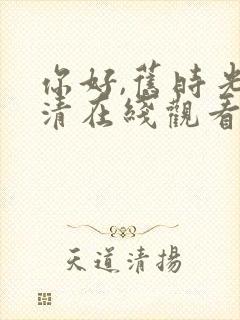 你好,舊時光
清在綫觀看
天道清揚